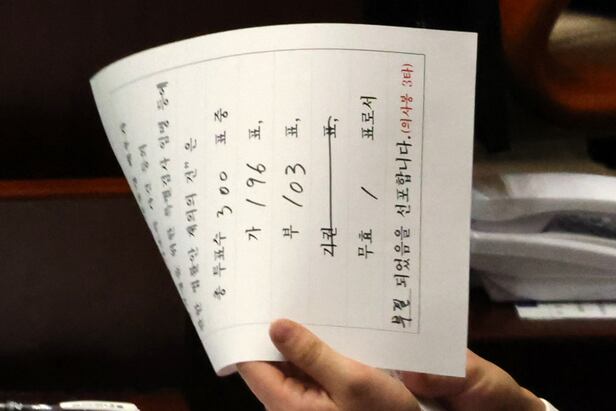 위한 특별검사 임명 등에
관한 법률안 재의의 건" 은
총 투표수 300 표 중
가 196 표,
부 103 표,
기권 표,
무효 1 표로서
부결 되었음을 선포합니다.(의사봉 3타)